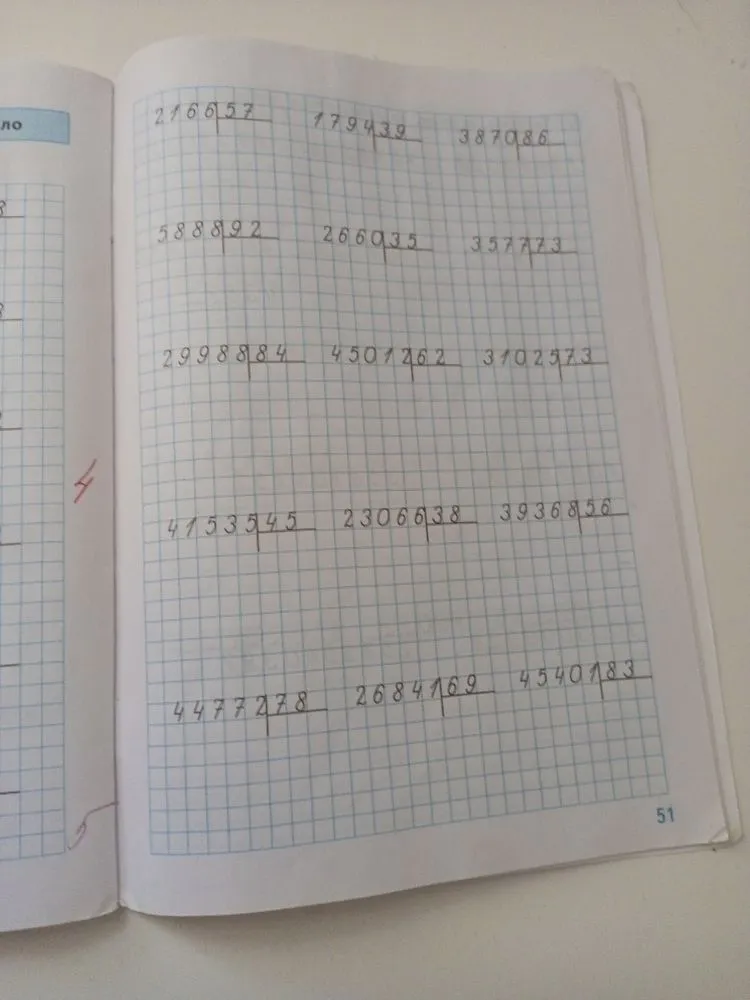 ло
2166 57 1794 39 3870 86
5888 92 2660 35 3577 73
29988 84 45012 62 31025 73
4
41535 45 23066 38 39368 56
44772 78 26841 69 45401 83
51